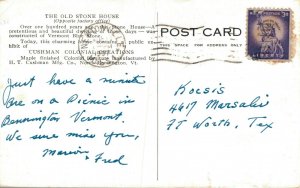 THE OLD STONE HOUSE
(Opposite factory office)
Over one hundred years old
and beautiful days
constructed of Vermont
Today, this charming
exhibit of
CUSHMAN COLONIAL CREATIONS
Maple finished Colonial furniture manufactured by
H. T. Cushman Mfg. Co., North Bennington, Vt.
POST CARD
THIS SPACE FOR ADDRESS ONLY
3¢
LIBERTY
Just have a minute
are on a Picnic in
Bennington Vermont.
We sure miss you,
Fred
4617 Marsalis
FT Worth, Tex